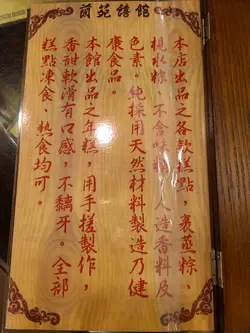 蘭苑饎館
本店出品之各款糕點、裹蒸粽、
梘水粽、不含味精、人造香料及
色素。純採用天然材料製造乃健
康食品。
本館出品之年糕，用手搓製作，
香甜軟滑有口感，不黐牙。全部
糕點凍食、熱食均可。